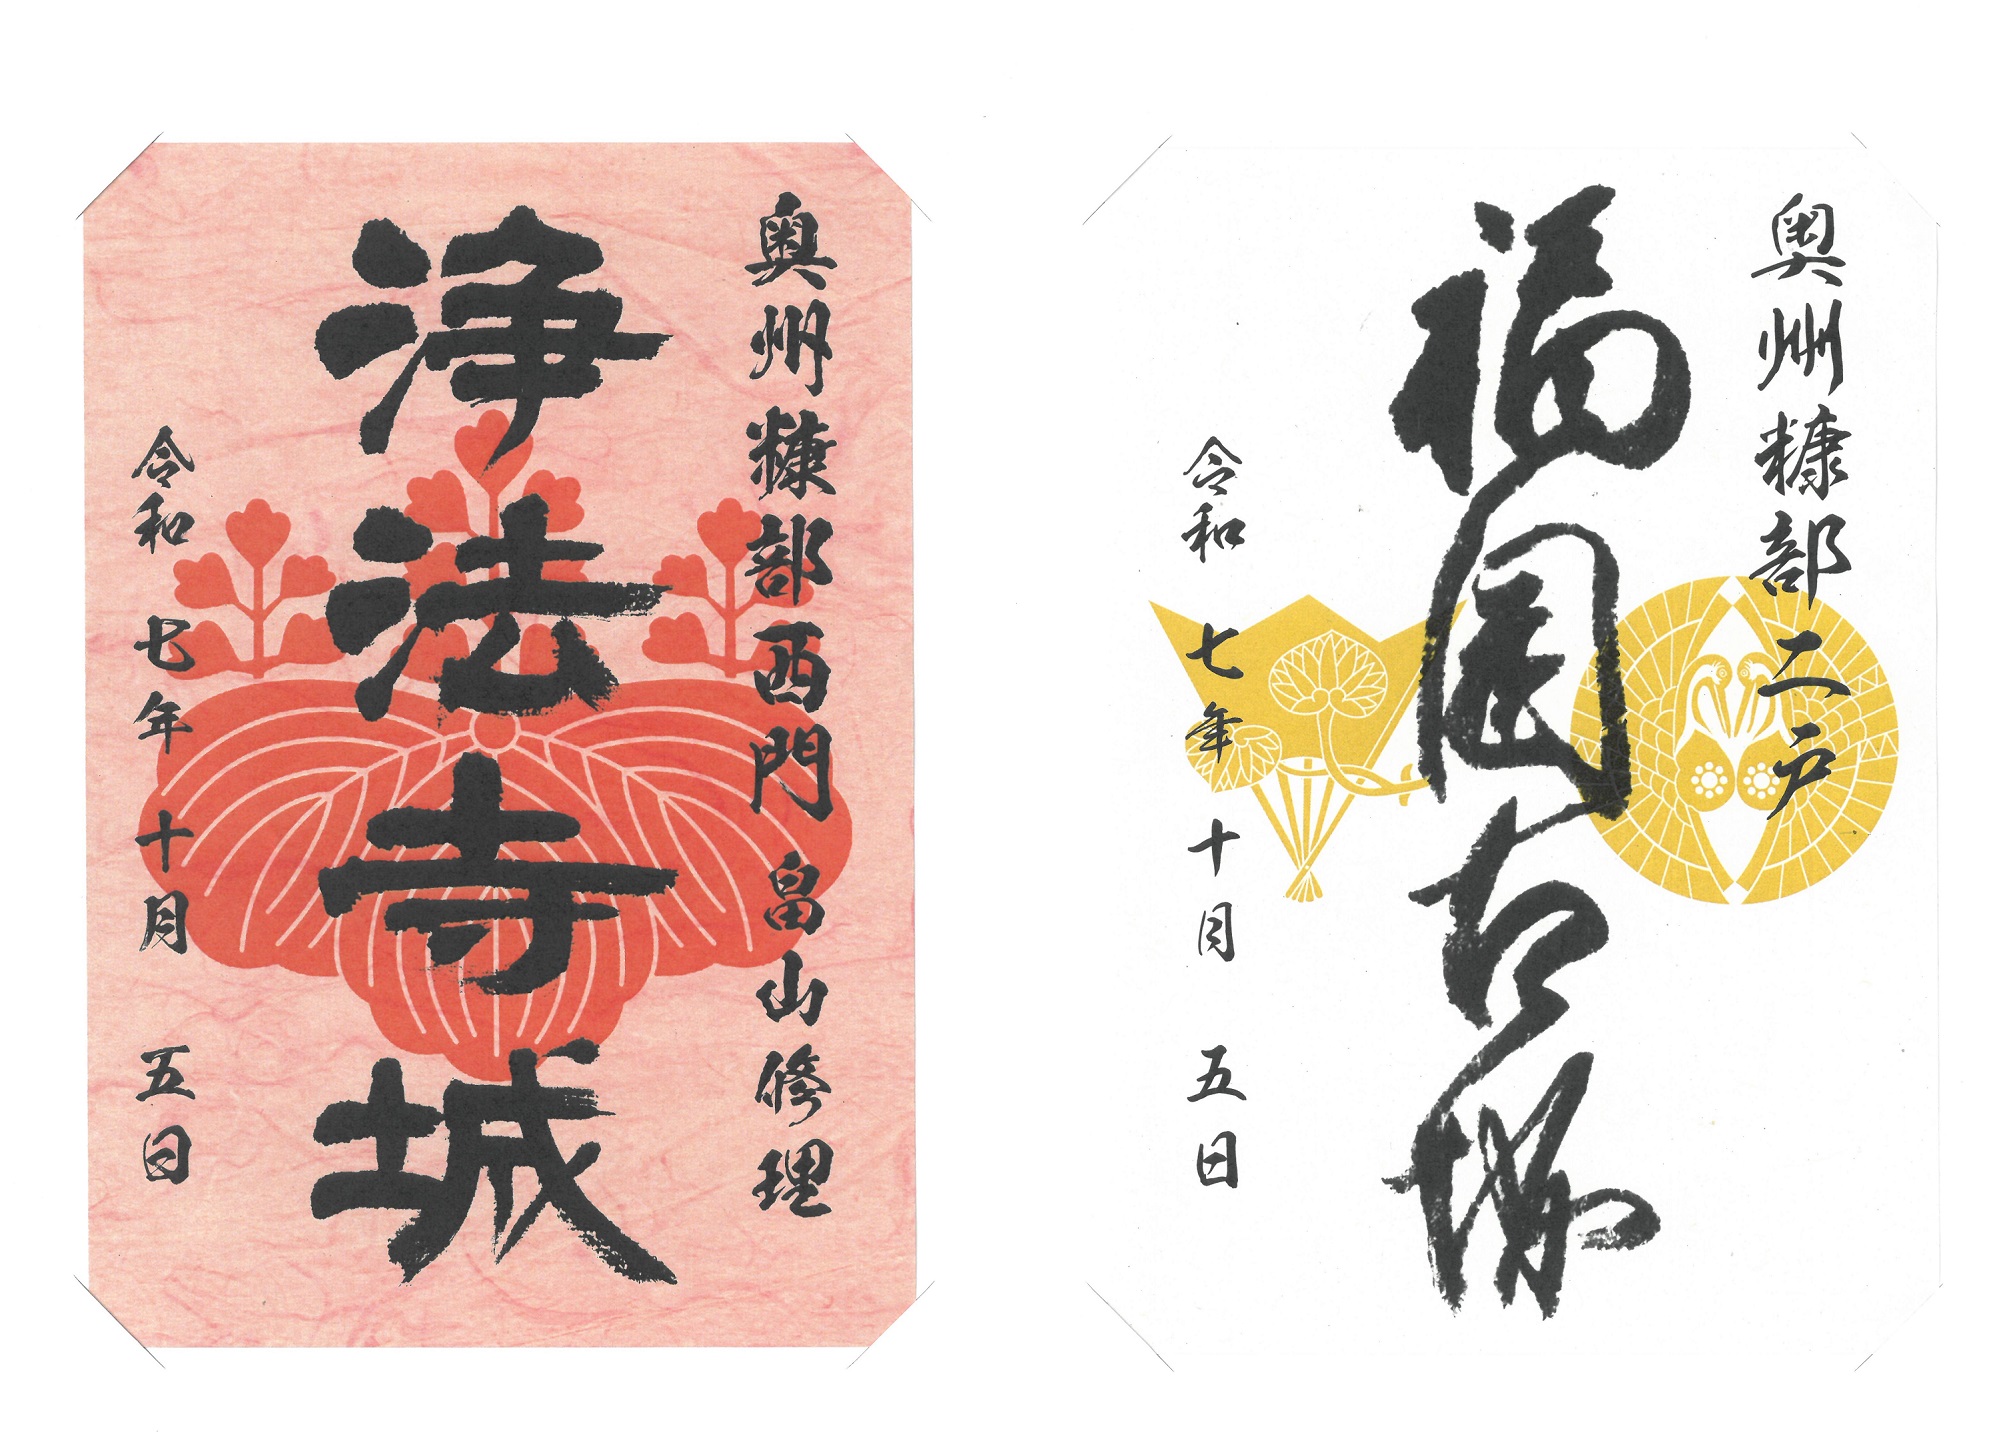 奥州糠部西門 畠山修理
浄法寺城
令和七年十月五日
奥州糠部二戸
福岡古城
令和七年十月五日